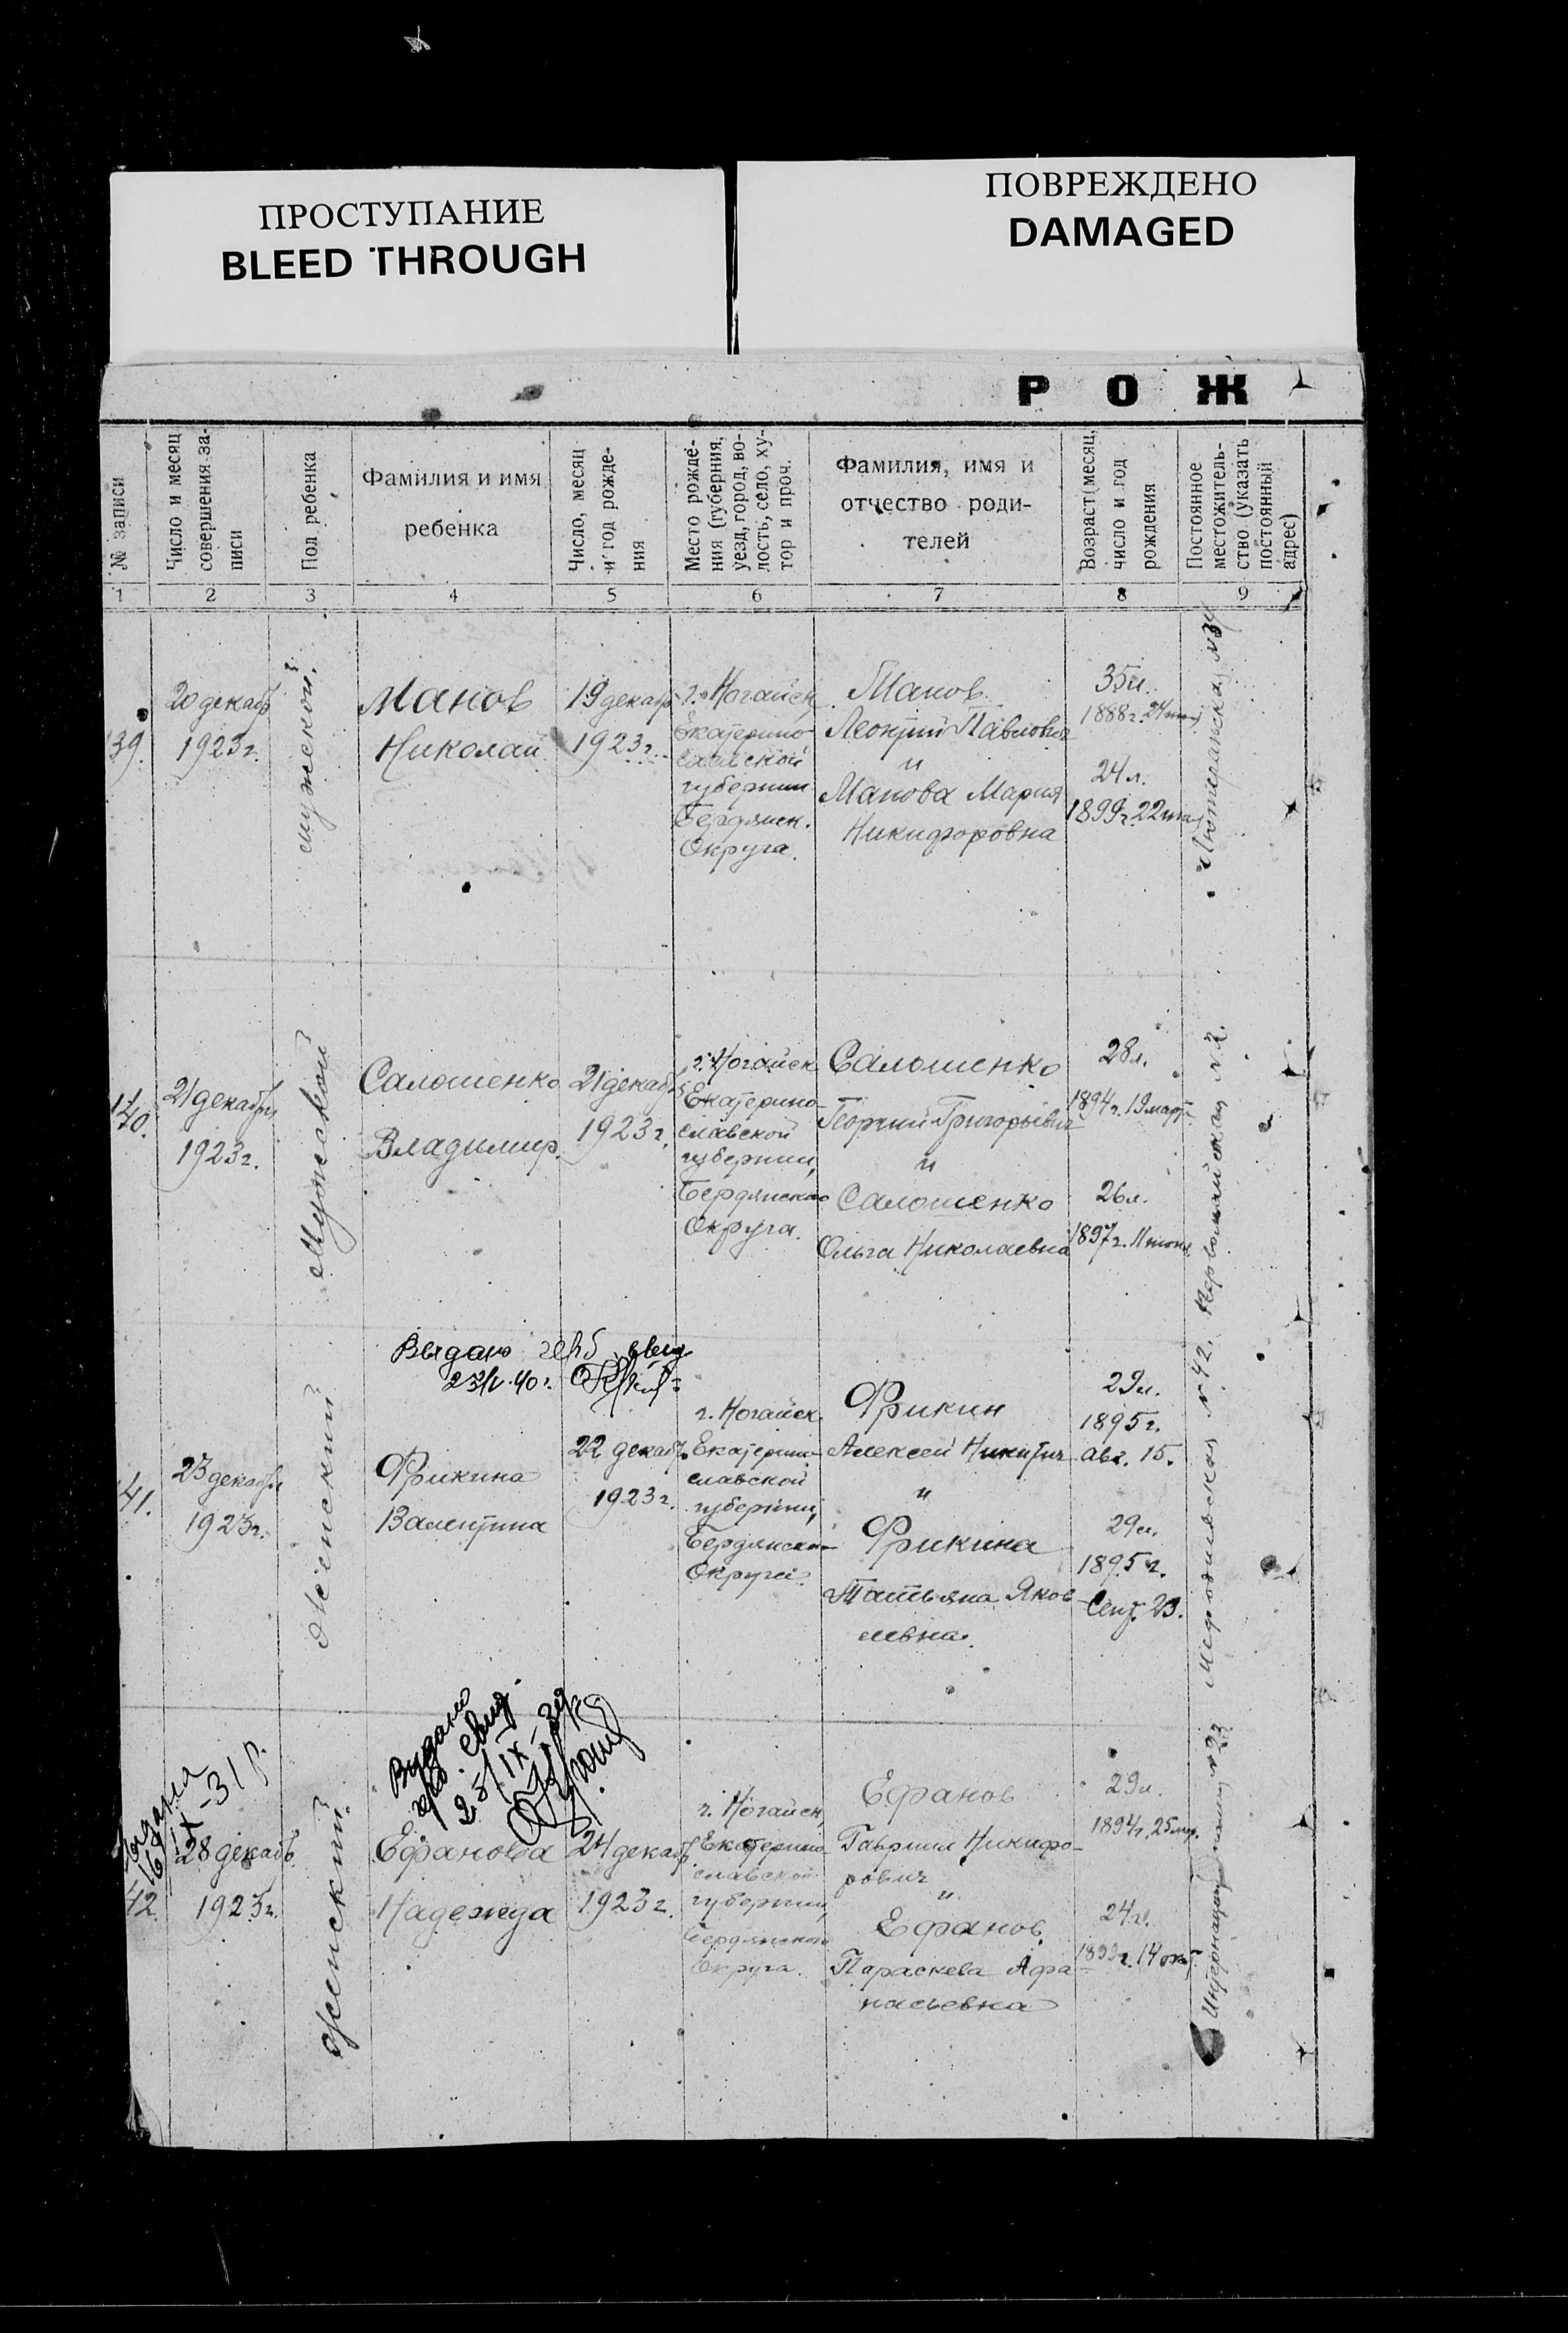 ПРОСТУПАНИЕ
BLEED THROUGH
ПОВРЕЖДЕНО
DAMAGED
Р О Ж
№ записи
Число и месяц
совершения за-
писи
Пол ребенка
Фамилия и имя
ребенка
Число, месяц
и год рожде-
ния
Место рожде-
ния (губерния,
уезд, город, во-
лость, село, ху-
тор и проч.
Фамилия, имя и
отчество роди-
телей
Возраст (месяц,
число и год
рождения
Постоянное
местожитель-
ство (указать
постоянный
адрес)
1 2 3 4 5 6 7 8 9
39.
20 декабр
1923г.
мужской.
Манов
Николай
19 декабр
1923г.
г. Ногайск,
Екатерино-
славской
губернии
Бердянск.
Округа.
Манов
Павлович
и
Манова Мария
Никифоровна
35л.
1888г. 24
24л.
1899г. 22
140.
21 декабря
1923г.
Мужской
Салошенко
Владимир.
21 декабр
1923г.
г. Ногайск
Екатерино-
славской
губернии,
Бердянского
Округа.
Салошенко
Георгий Григорьевич
и
Салошенко
Ольга Николаевна
28л.
1894г. 19 март
26л.
1897г. 11 июня
Первомайская №2.
Выдано свид
40г.
41.
23 декабря
1923г.
Женский
Фрикина
Валентина
22 декабр.
1923г.
г. Ногайск
Екатерино-
славской
губернии,
Бердянско-
Округа.
Фрикин
Алексей Никитич
и
Фрикина
Татьяна Яков-
левна.
29л.
1895г.
авг. 15.
29л.
1895г.
Сент. 23.
№42.
Выдано
IX-31 р.
Выдано
свид.
25/IX-39р
42.
28 декабр
1923г.
женский.
Ефанова
Надежда
24 декабр
1923г.
г. Ногайск,
Екатерино-
славской
губернии,
Бердянской
Округа.
Ефанов
Гавриил Никифо-
рович
и
Ефанов
Параскева Афа
насьевна
29л.
1894г. 25
24л.
1899г. 14 окт.